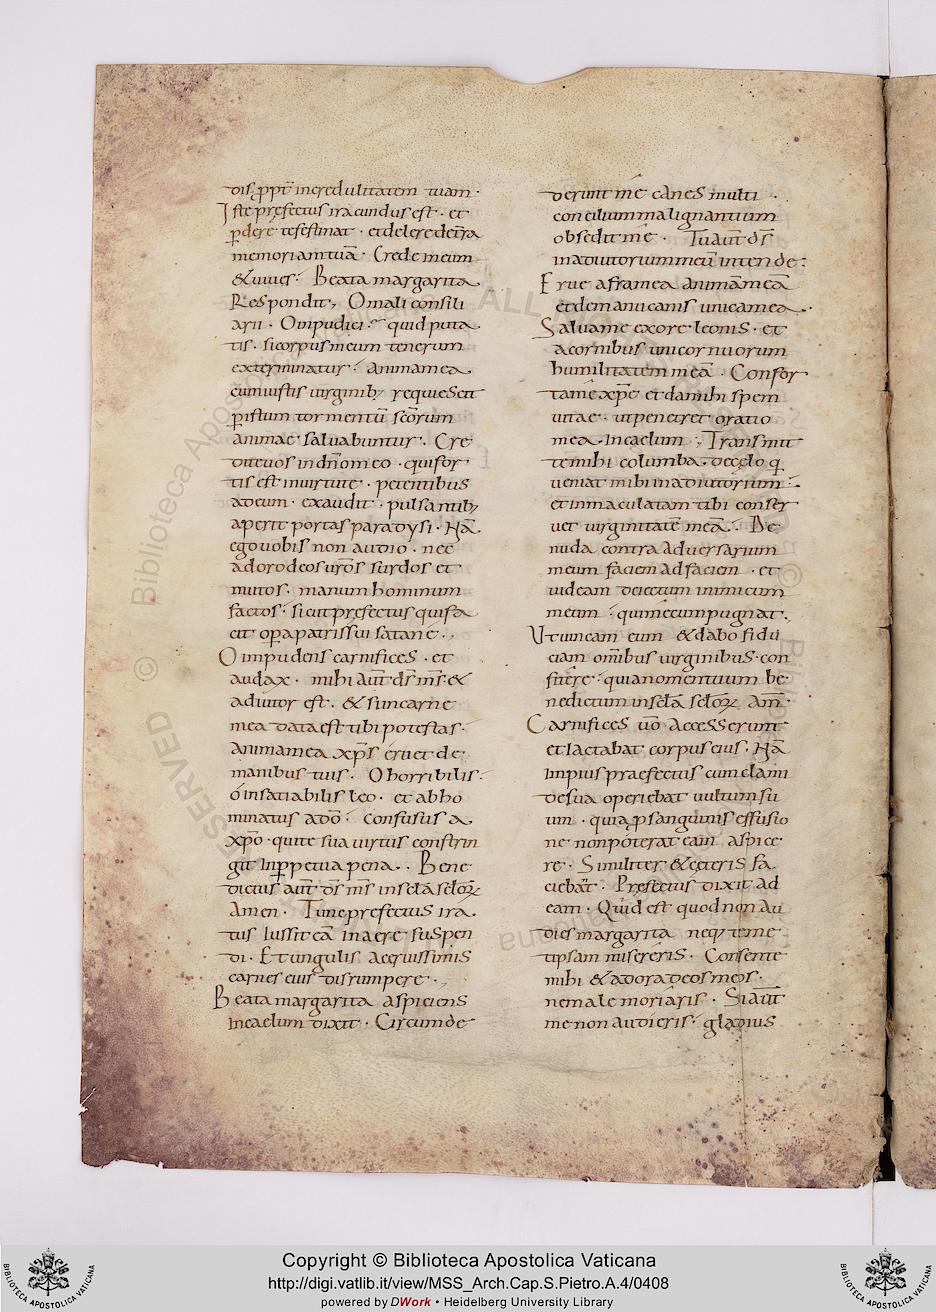 dis, ꝓpt̄ incredulitatem tuam ·
Iste p̨fectus iracundus est · et
ꝑdere te festinat · et delere de tr̄a
memoriam tuā · Crede in eum
& uiues · Beata margarita
Respondit; O mali consili
arii · O inpudici · quid puta
tis · si corpus meum tenerum
exterminatur · anima mea
cum iustis uirginib; requiescit
ꝑ istum tormentū sc̄orum
animae saluabuntur · Cre
dite uos in dn̄o meo · qui for
tis est in uirtute · petentibus
ad eum · exaudit · pulsantib;
aperit portas paradysi · Nā
ego uobis non audio · nec
adoro deos ur̄os surdos et
mutos · manum hominum
factos · sicut p̨fectus qui fa
cit oꝑa patris sui satanę ·,
O inpudens carnifices · et
audax · mihi aut̄ ds̄ ms̄ · &
adiutor est · & si in carne
mea data est tibi potestas ·
anima mea xp̄s eruet de
manibus tuis · O horribilis ·
o insatiabilis leo · et abho
minatus a dō · confusus a
xp̄o · qui te sua uirtus constrin
git in ꝑpetua pena · Bene
dictus aut̄ ds̄ ms̄ in sc̄la sc̄loꝝ
Amen · Tunc prefectus ira
tus iussit eā in aere suspen
di · Et ungulis acquissimis
carnes eius disrumpere ·,
Beata margarita aspiciens
in caelum dixit · Circumde
derunt me canes multi ·
concilium malignantium
obsedit me · Tu aut̄ ds̄
in adiutorium meū intende :
Erue a framea animā meā
et de manu canis unica mea ·
Salua me ex ore leonis · et
a cornibus unicornuorum
humilitatem meā · Confor
ta me xp̄e et da mihi spem
uitae · ut penetret oratio
mea · in caelum · Transmit
te mihi columba · de cęlo q̨
ueniat mihi in adiutorium ·
et inmaculatam tibi conser
uet uirginitatē meā · De
nuda contra aduersarium
meum faciem ad faciem · et
uideam deiectum inimicum
meum · qui mecum pugnat ·
Ut uincam eum & dabo fidu
ciam om̄ibus uirginibus · con
fitere · quia nomen tuum be
nedictum in sc̄la sc̄loꝝ am̄ ·
Carnifices uō accesserunt
et lactabat corpus eius · Nā
impius praefectus cum clami
de sua operiebat uultum su
um · quia p̨ sanguinis effusio
ne non poterat eam aspice
re · Similiter & ceteris fa
ciebat̄ · Pręfectus dixit ad
eam · Quid est quod non au
dies margarita neq; teme
tipsam misereris · Consente
mihi & adora deos meos ·
ne male moriaris · Si aut̄
me non audieris · gladius
Copyright © Biblioteca Apostolica Vaticana
http://digi.vatlib.it/view/MSS_Arch.Cap.S.Pietro.A.4/0408
powered by DWork • Heidelberg University Library